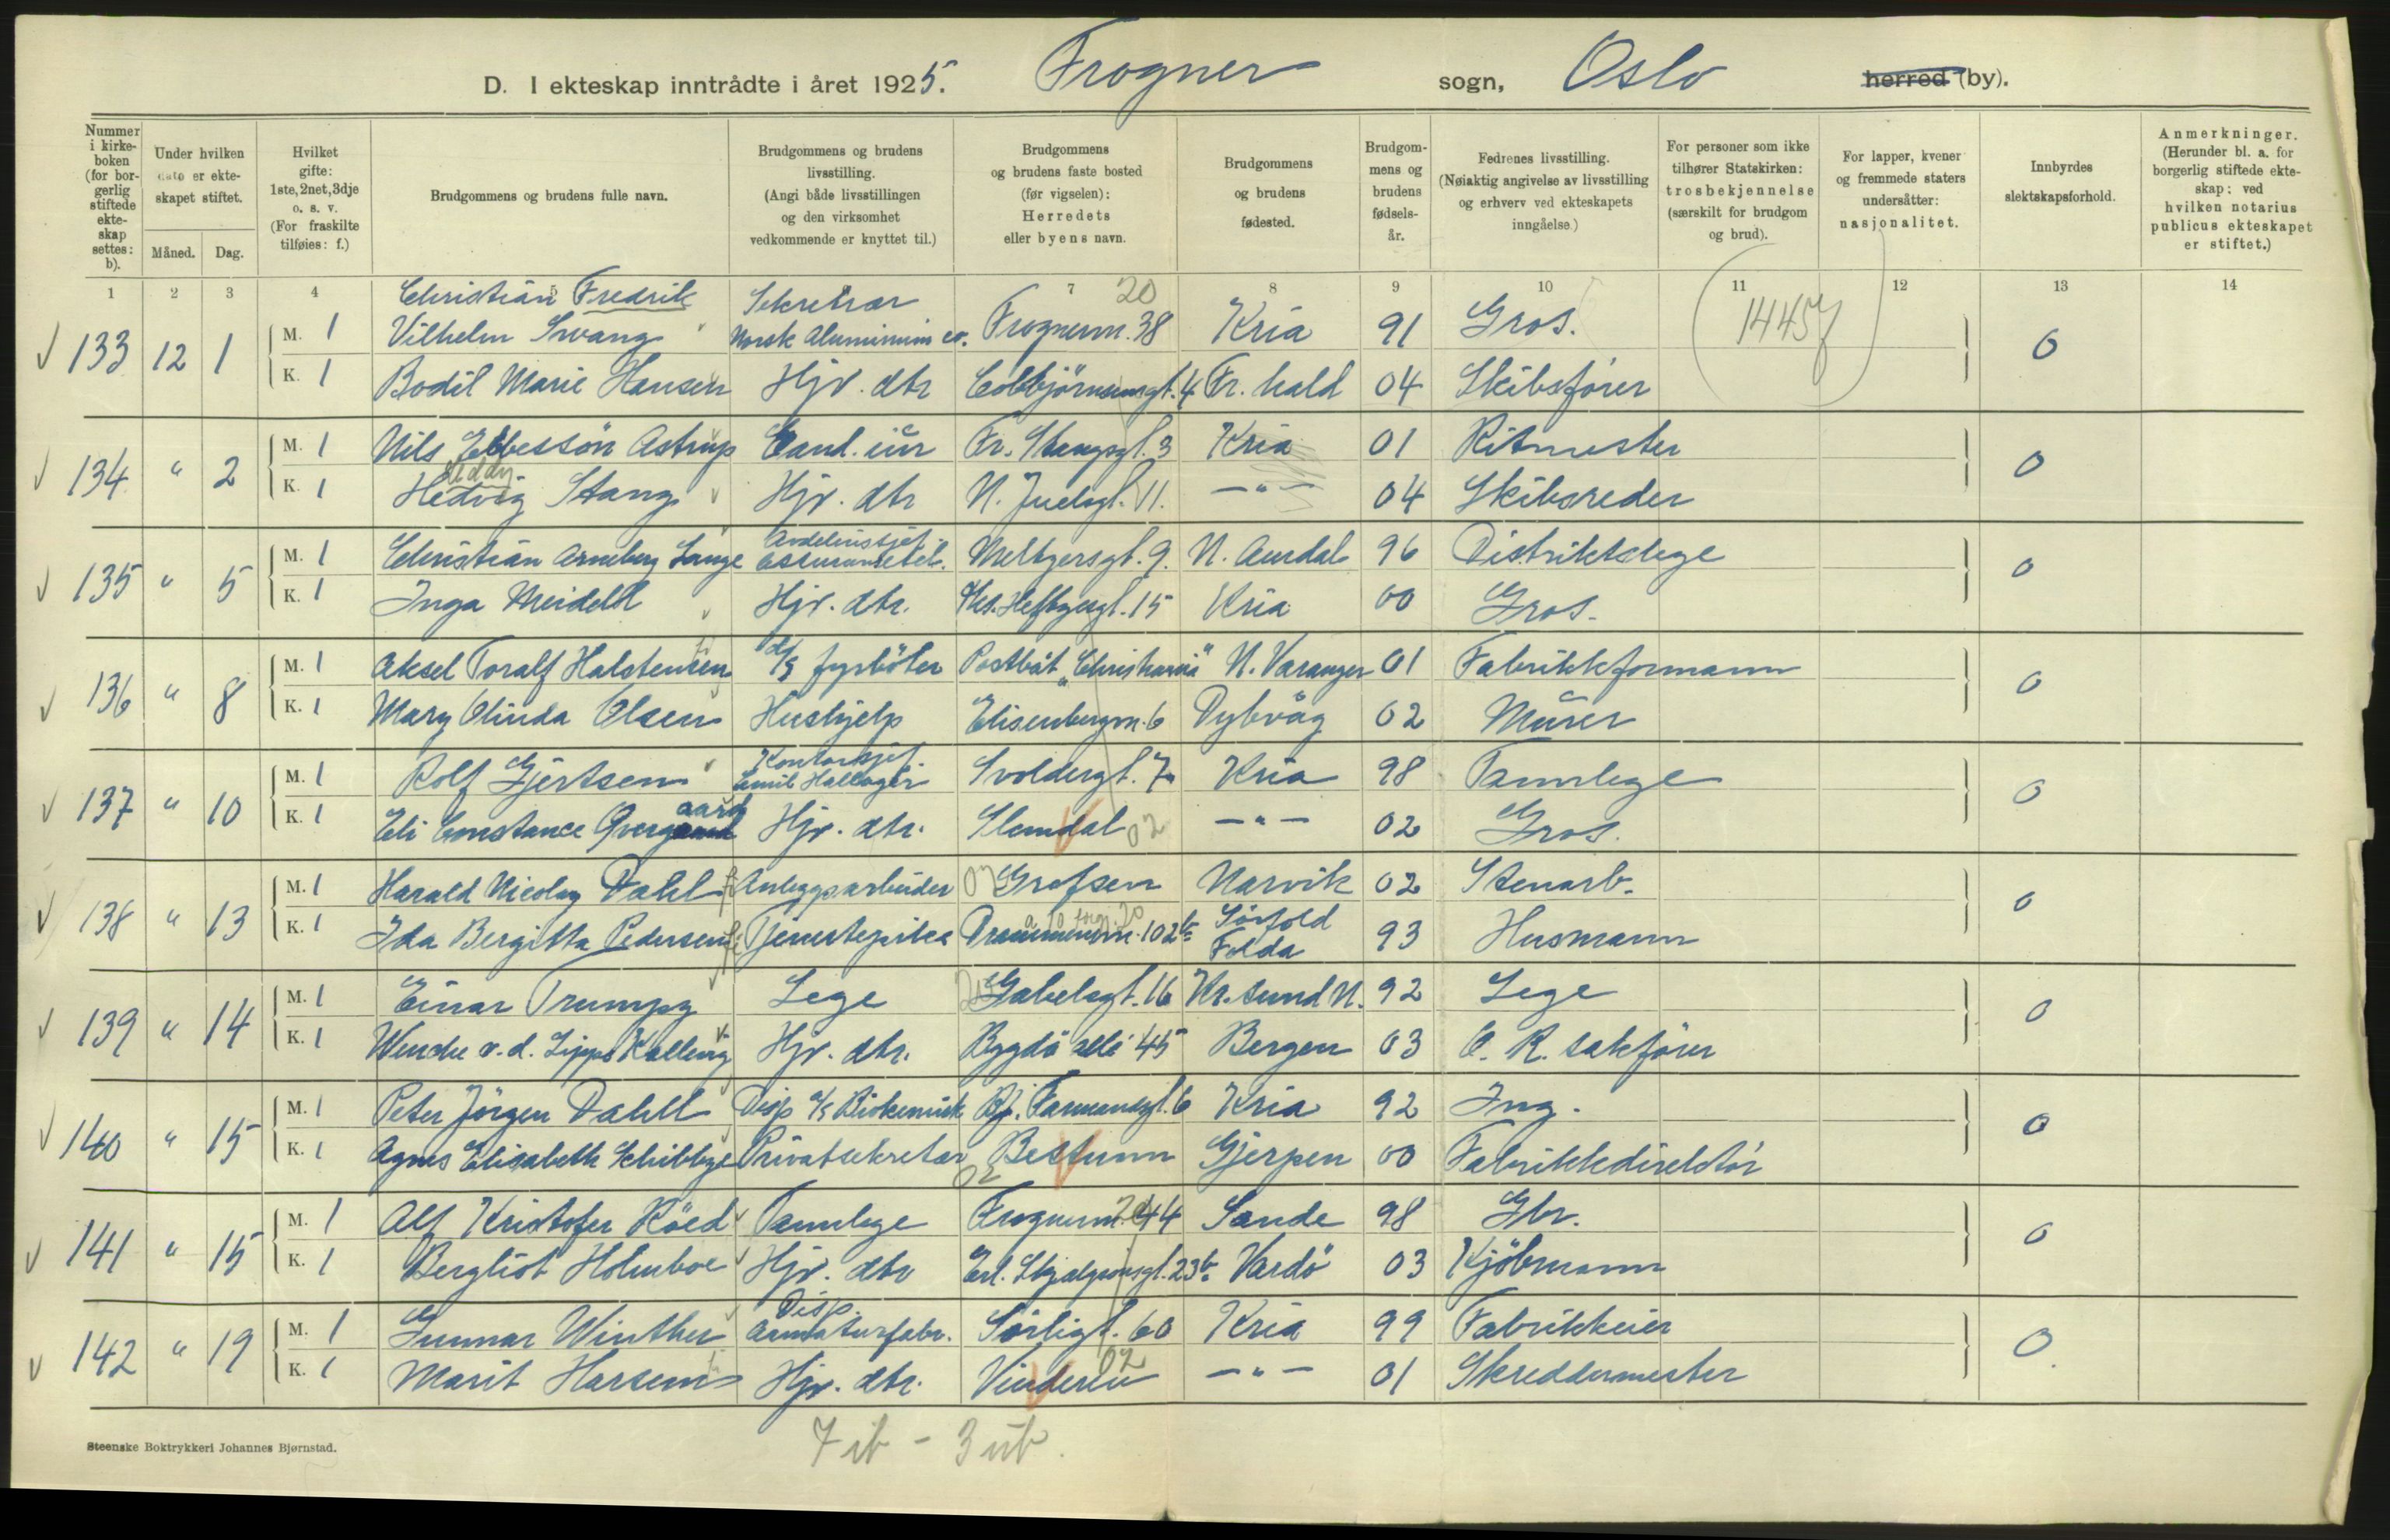 D. I ekteskap inntrådte i året 1925. Frogner sogn, Oslo herred (by).
Nummer i kirkeboken (for borgerlig stiftede ekteskap settes: b).
Under hvilken dato er ekteskapet stiftet.
Måned. Dag.
Hvilket gifte: 1ste, 2net, 3dje o. s. v. (For fraskilte tilføies: f.)
Brudgommens og brudens fulle navn.
Brudgommens og brudens livsstilling. (Angi både livsstillingen og den virksomhet vedkommende er knyttet til.)
Brudgommens og brudens faste bosted (før vigselen): Herredets eller byens navn.
Brudgommens og brudens fødested.
Brudgommens og brudens fødselsår.
Fedrenes livsstilling. (Nøiaktig angivelse av livsstilling og erhverv ved ekteskapets inngåelse)
For personer som ikke tilhører Statskirken: trosbekjennelse (særskilt for brudgom og brud).
For lapper, kvener og fremmede staters undersåtter: nasjonalitet.
Innbyrdes slektskapsforhold.
Anmerkninger. (Herunder bl. a. for borgerlig stiftede ekteskap: ved hvilken notarius publicus ekteskapet er stiftet.)
1 2 3 4 5 7 8 9 10 11 12 13 14
20
14457
133 12 1 M. 1 Christian Fredrik Vilhelm Svang Sekretær Norsk Aluminium co. Frognerv. 38 Kria 91 Gros. 0
K. 1 Bodil Marie Hansen Hjv. dtr Colbjörnsensgt. 4 Fr. hald 04 Skibsfører
134 " 2 M. 1 Nils Ebbessön Astrup Cand. iur Fr. Stangsgt. 3 Kria 01 Ritmester 0
Heddy
K. 1 Hedvig Stang Hjv. dtr N. Juelsgt. 11. —"— 04 Skibsreder
135 " 5 M. 1 Christian Arneberg Lange Avdelinssjef Meltzersgt. 9. N. Aurdal 96 Distriktslege 0
K. 1 Inga Meidell Hjv. dtr. Ths. Heftyesgt. 15 Kria 00 Gros.
136 " 8 M. 1 Aksel Toralf Halstensen d/s fyrböter Postbåt "Christiania" N. Varanger 01 Fabrikkformann 0
K. 1 Mary Olinda Olsen Hushjelp Elisenbergv. 6 Dybvåg 02 Murer
137 " 10 M. 1 Rolf Gjertsen Kontorsjef. Emil Hallager Svoldergt. 7 Kria 98 Tannlege 0
K. 1 Eli Constance Øvergaard Hjv. dtr. Slemdal 02 —"— 02 Gros.
138 " 13 M. 1 Harald Nicolay Dahl Anleggsarbeider Grefsen Narvik 02 Stenarb. 0
K. 1 Ida Bergitta Pedersen Tjenestepike Drammensv. 102b Sörfold Folda 93 Husmann
139 " 14 M. 1 Einar Trumpy Lege Gabelsgt. 16 Kr. sund N. 92 Lege 0
K. 1 Wenche v. d. Lippe Kallevig Hjv. dtr. Bygdö allé 45 Bergen 03 O. R. sakfører
140 " 15 M. 1 Peter Jörgen Dahll Disp a/s Biokemisk Bj. Farmandsgt. 6 Kria 92 Ing. 0
K. 1 Agnes Elisabeth Schibbye Privatsekretær Bestum 02 Gjerpen 00 Fabrikkdirektör
141 " 15 M. 1 Alf Kristofer Röed Tannlege Frognerv. 44 Sande 98 Gbr. 0
K. 1 Bergliot Holmboe Hjv. dtr Erl. Skjalgsonsgt. 23b Vardö 03 Kjöbmann
142 " 19 M. 1 Gunnar Winther Disp. Armaturfabr. Sørligt. 60 Kria 99 Fabrikkeier 0
K. 1 Marit Harsem Hjv. dtr. Vinderen 02 —"— 01 Skreddermester
7 ib - 3 ub.
Steenske Boktrykkeri Johannes Bjørnstad.